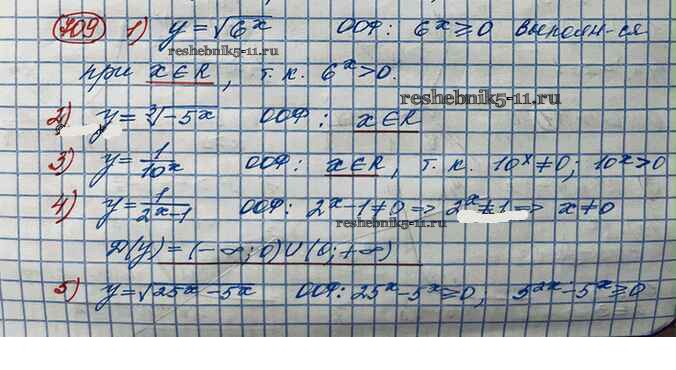 709 1) y = √6^x ООФ: 6^x ≥ 0 выполн-ся
reshebnik5-11.ru
при x ∈ R, т.к. 6^x > 0.
reshebnik5-11.ru
2) y = ∛-5^x ООФ: x ∈ R
3) y = 1/10^x ООФ: x ∈ R, т.к. 10^x ≠ 0; 10^x > 0
4) y = 1/2^x-1 ООФ: 2^x - 1 ≠ 0 => 2^x ≠ 1 => x ≠ 0
reshebnik5-11.ru
Д(y) = (-∞; 0) ∪ (0; +∞)
5) y = √25^x - 5^x ООФ: 25^x - 5^x ≥ 0; 5^2x - 5^x ≥ 0